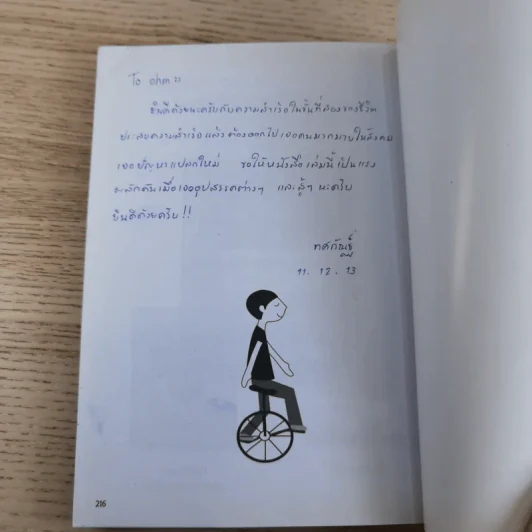 To ohm
ยินดีด้วยนะครับกับความสำเร็จในขั้นที่สองของชีวิต
ประสบความสำเร็จแล้วต้องออกไปเจอคนมากมายในสังคม
เจอปัญหาแปลกใหม่ ขอให้หนังสือเล่มนี้เป็นแรง
ผลักดันเมื่อเจออุปสรรคต่างๆ และสู้ๆ นะครับ
ยินดีด้วยครับ!!
11.12.13
216